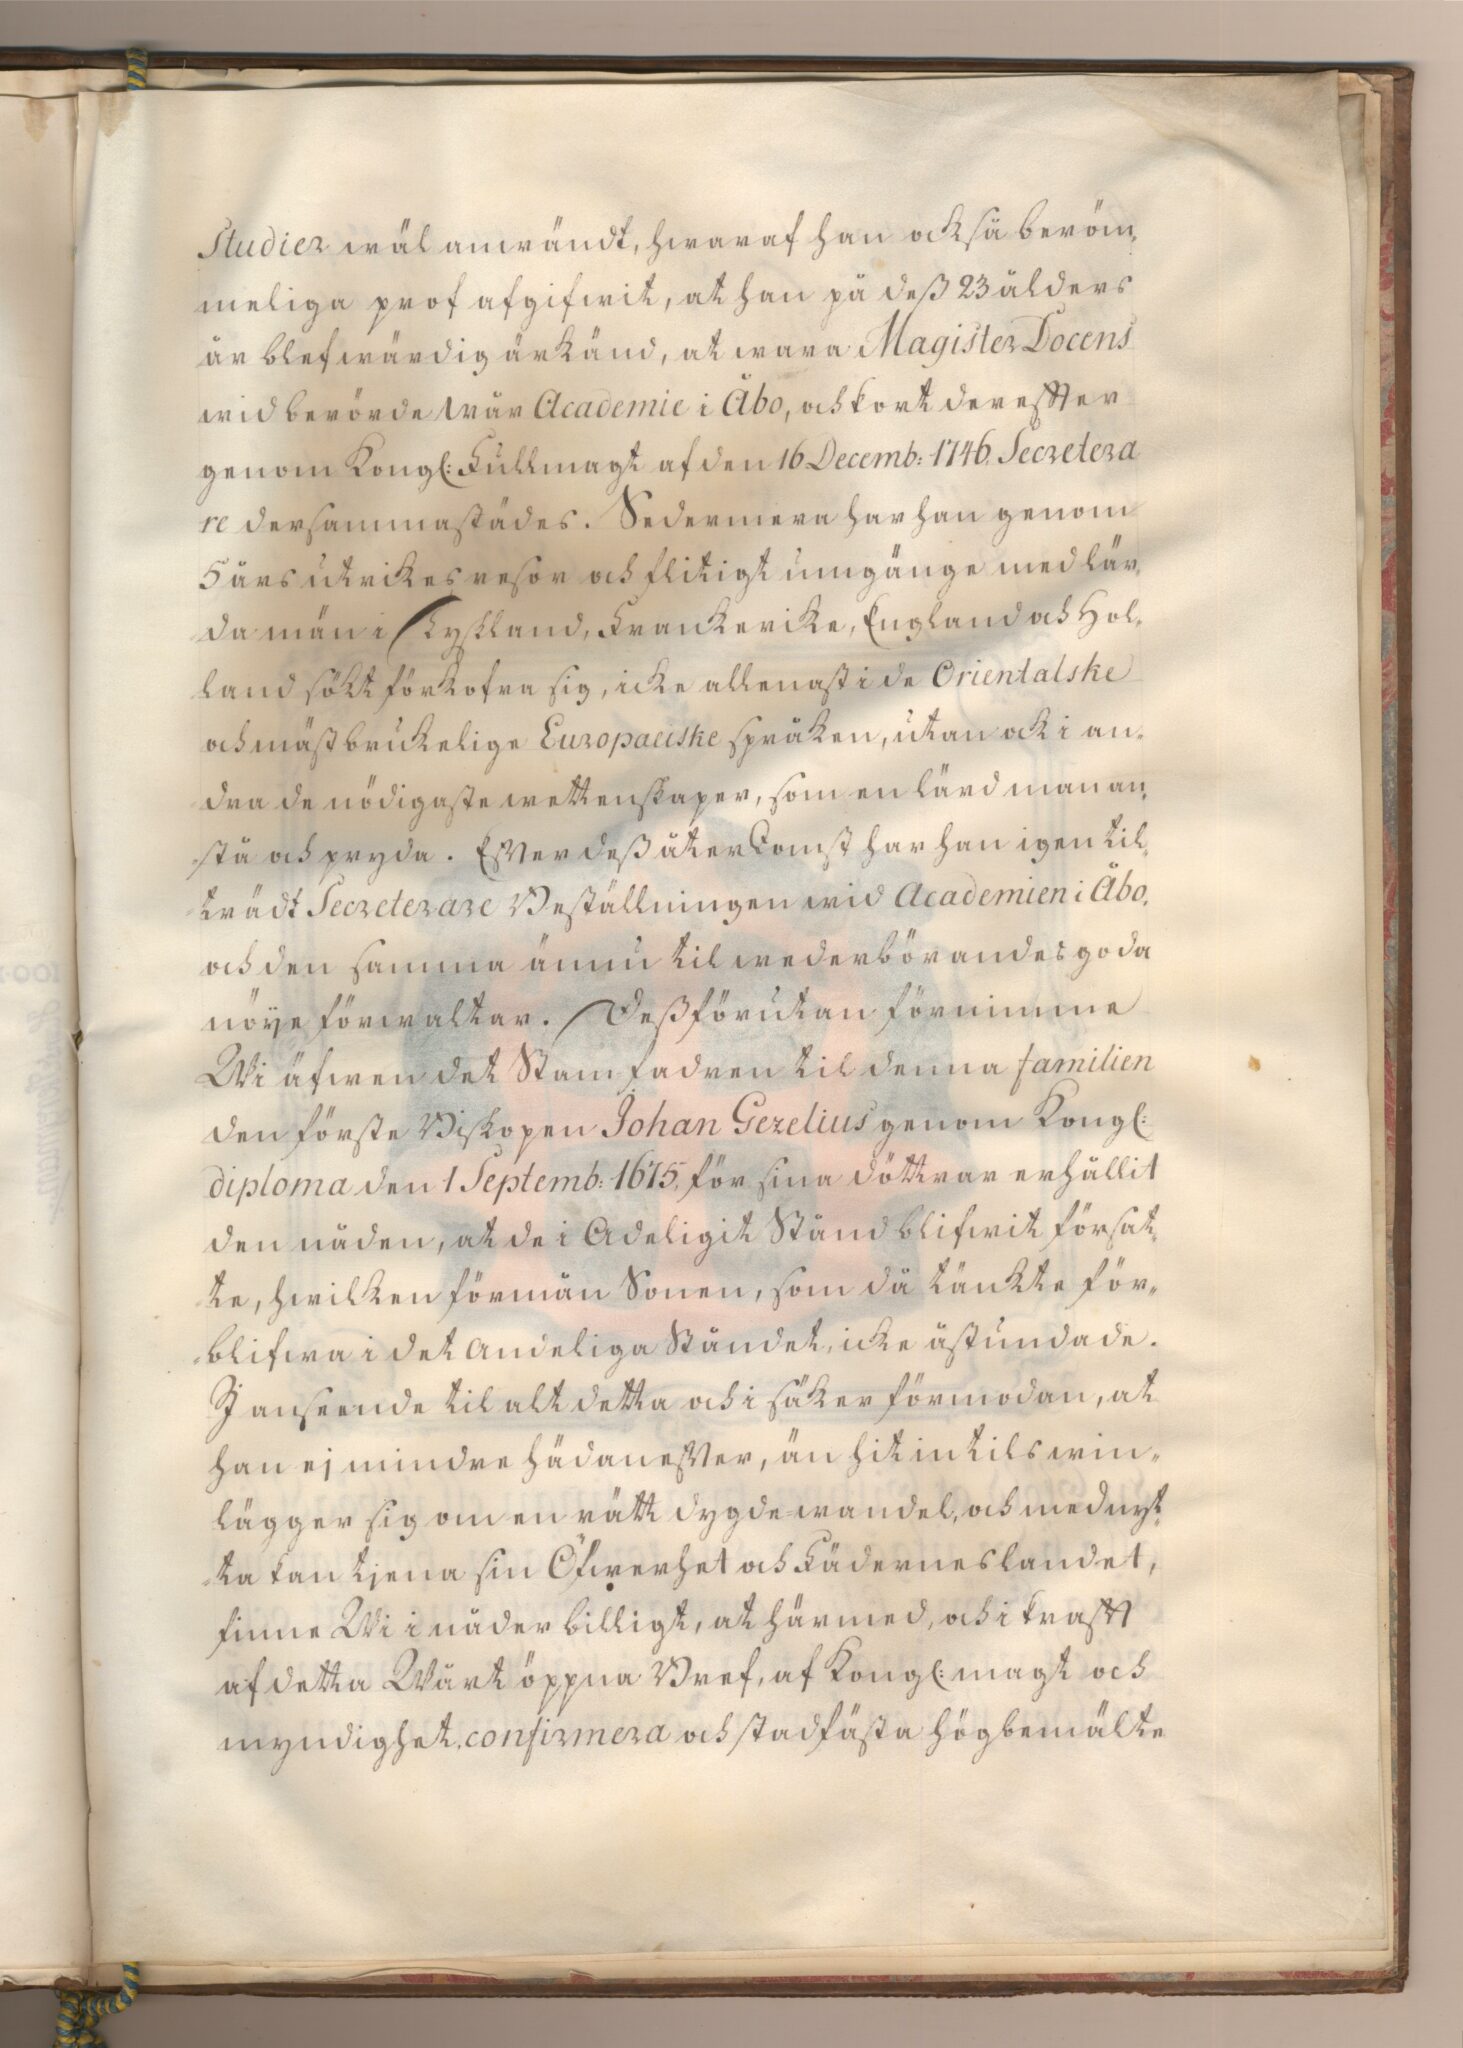 Studier wäl anwändt, hwaraf han också beröm-
meliga prof afgifwit, at han på deß 23 ålders
år blef wärdig ärkänd, at wara Magister Docens
wid berörde Wår Academie i Åbo, och kort derefter
genom Kongl: Fullmagt af den 16 Decemb: 1746. Secretera
re dersammastädes. Sedermera har han genom
5 års utrikes resor och flitigt umgänge med lär-
da män i Tyskland, Franckerike, England och Hol-
land sökt förkofra sig, icke allenast i de Orientalske
och mäst brukelige Europaeiske språken, utan ock i an-
dra de nödigaste wettenskaper, som en lärd man an-
stå och pryda. Efter deß återkomst har han igen til-
trädt Secreterare Beställningen wid Academien i Åbo,
och den samma ännu til wederbörandes goda
nöye förwaltar. Deßförutan förnimme
Wi äfwen det Stamfadren til denna familien
den förste Biskopen Johan Gezelius genom Kongl:
diploma den 1 Septemb: 1675. för sina döttrar erhållit
den nåden, at de i Adeligit Stånd blifwit försat-
te, hwilken förmån Sonen, som då tänckte för-
blifwa i det Andeliga Ståndet, icke åstundade.
I anseende til alt detta och i säker förmodan, at
han ej mindre hädanefter, än hit in tils win-
lägger sig om en rätt dygdewandel, och med nyt-
ta kan tjena sin Öfwerhet och Fäderneslandet,
finne Wi i nåder billigt, at härmed, och i kraft
af detta Wårt öppna Bref, af Kongl: magt och
myndighet, confirmera och stadfästa högbemälte